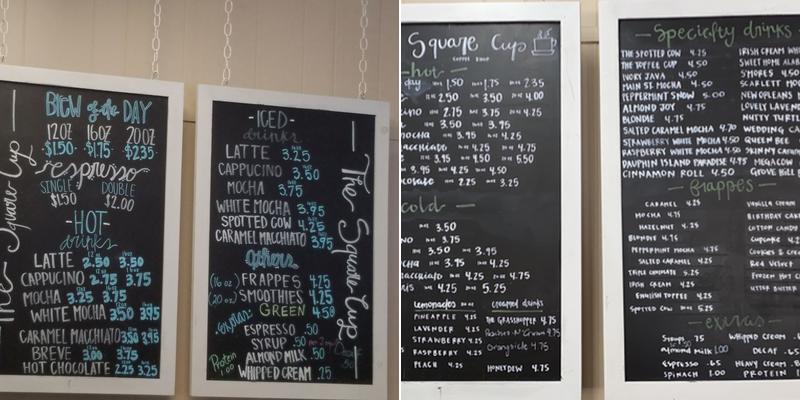 The Square Cup
BREW of the DAY
12OZ 16OZ 20OZ
$1.50 $1.75 $2.35
espresso
SINGLE DOUBLE
$1.50 $2.00
-HOT-
drinks
LATTE 2.50 3.50
CAPPUCCINO 2.75 3.75
MOCHA 3.25 3.75
WHITE MOCHA 3.50 3.95
CARAMEL MACCHIATO 3.50 3.95
BREVE 3.00 3.75
HOT CHOCOLATE 2.25 3.25
-ICED-
drinks
LATTE 3.25
CAPPUCCINO 3.50
MOCHA 3.75
WHITE MOCHA 3.95
SPOTTED COW 4.25
CARAMEL MACCHIATO 3.95
Others
(16 oz) FRAPPES 4.25
(20 oz) SMOOTHIES 4.25
GREEN 4.50
extras:
ESPRESSO .50
SYRUP .50
Protein 1.00
ALMOND MILK .50
WHIPPED CREAM .25
The Square Cup
Square Cup
COFFEE SHOP
hot
day 1.50 1.75 2.35
2.50 3.50 4.00
cino 2.75 3.75 4.25
3.50 3.95
mocha 3.95 4.25
acchiato 4.25 4.75
3.95 4.50 5.50
3.95 4.25
ocolate 2.25 3.25
cold
3.50
NO 3.75
3.50 3.95
ocha 3.95 4.25
acchiato 4.25 4.75
4.25 5.25
Lemonades creamed drinks
PINEAPPLE 4.25 THE GRASSHOPPER 4.75
LAVENDER 4.25 Peaches-N'-Cream 4.75
STRAWBERRY 4.25 Orangesicle 4.75
RASPBERRY 4.25
PEACH 4.25 HONEYDEW 4.75
Specialty drinks
THE SPOTTED COW 4.25 IRISH CREAM WH
THE TOFFEE CUP 4.50 SWEET HOME ALAB
IVORY JAVA 4.50 S'MORES 4.50
MAIN ST. MOCHA 4.50 SCARLETT MO
PEPPERMINT SNOW 5.00 NEW ORLEANS
ALMOND JOY 4.75 LOVELY LAVEN
BLONDIE 4.75 NUTTY TURTL
SALTED CARAMEL MOCHA 4.70 WEDDING CA
STRAWBERRY WHITE MOCHA 4.50 QUEEN BEE
RASPBERRY WHITE MOCHA 4.50 SKINNY CARAM
DAUPHIN ISLAND PARADISE 4.95 MEGACOW
CINNAMON ROLL 4.50 GROVE HILL
frappes
CARAMEL 4.25 VANILLA
MOCHA 4.75 BIRTHDAY CAK
HAZELNUT 4.25 COTTON CANDY
BLONDIE 4.75 Cupcake 4.2
PEPPERMINT MOCHA 4.75 Cookies & Cre
SALTED CARAMEL 4.25 Red Velvet
TRIPLE CHOCOLATE 5.25 Frozen Hot C
IRISH CREAM 4.25 UTTER BUTTER
ENGLISH TOFFEE 4.25
SPOTTED COW 5.25
extras
Syrups .75 Whipped Cream
Almond Milk 1.00 DECAF .65
espresso .65 HEAVY CREAM
SPINACH 1.00 PROTEIN 1